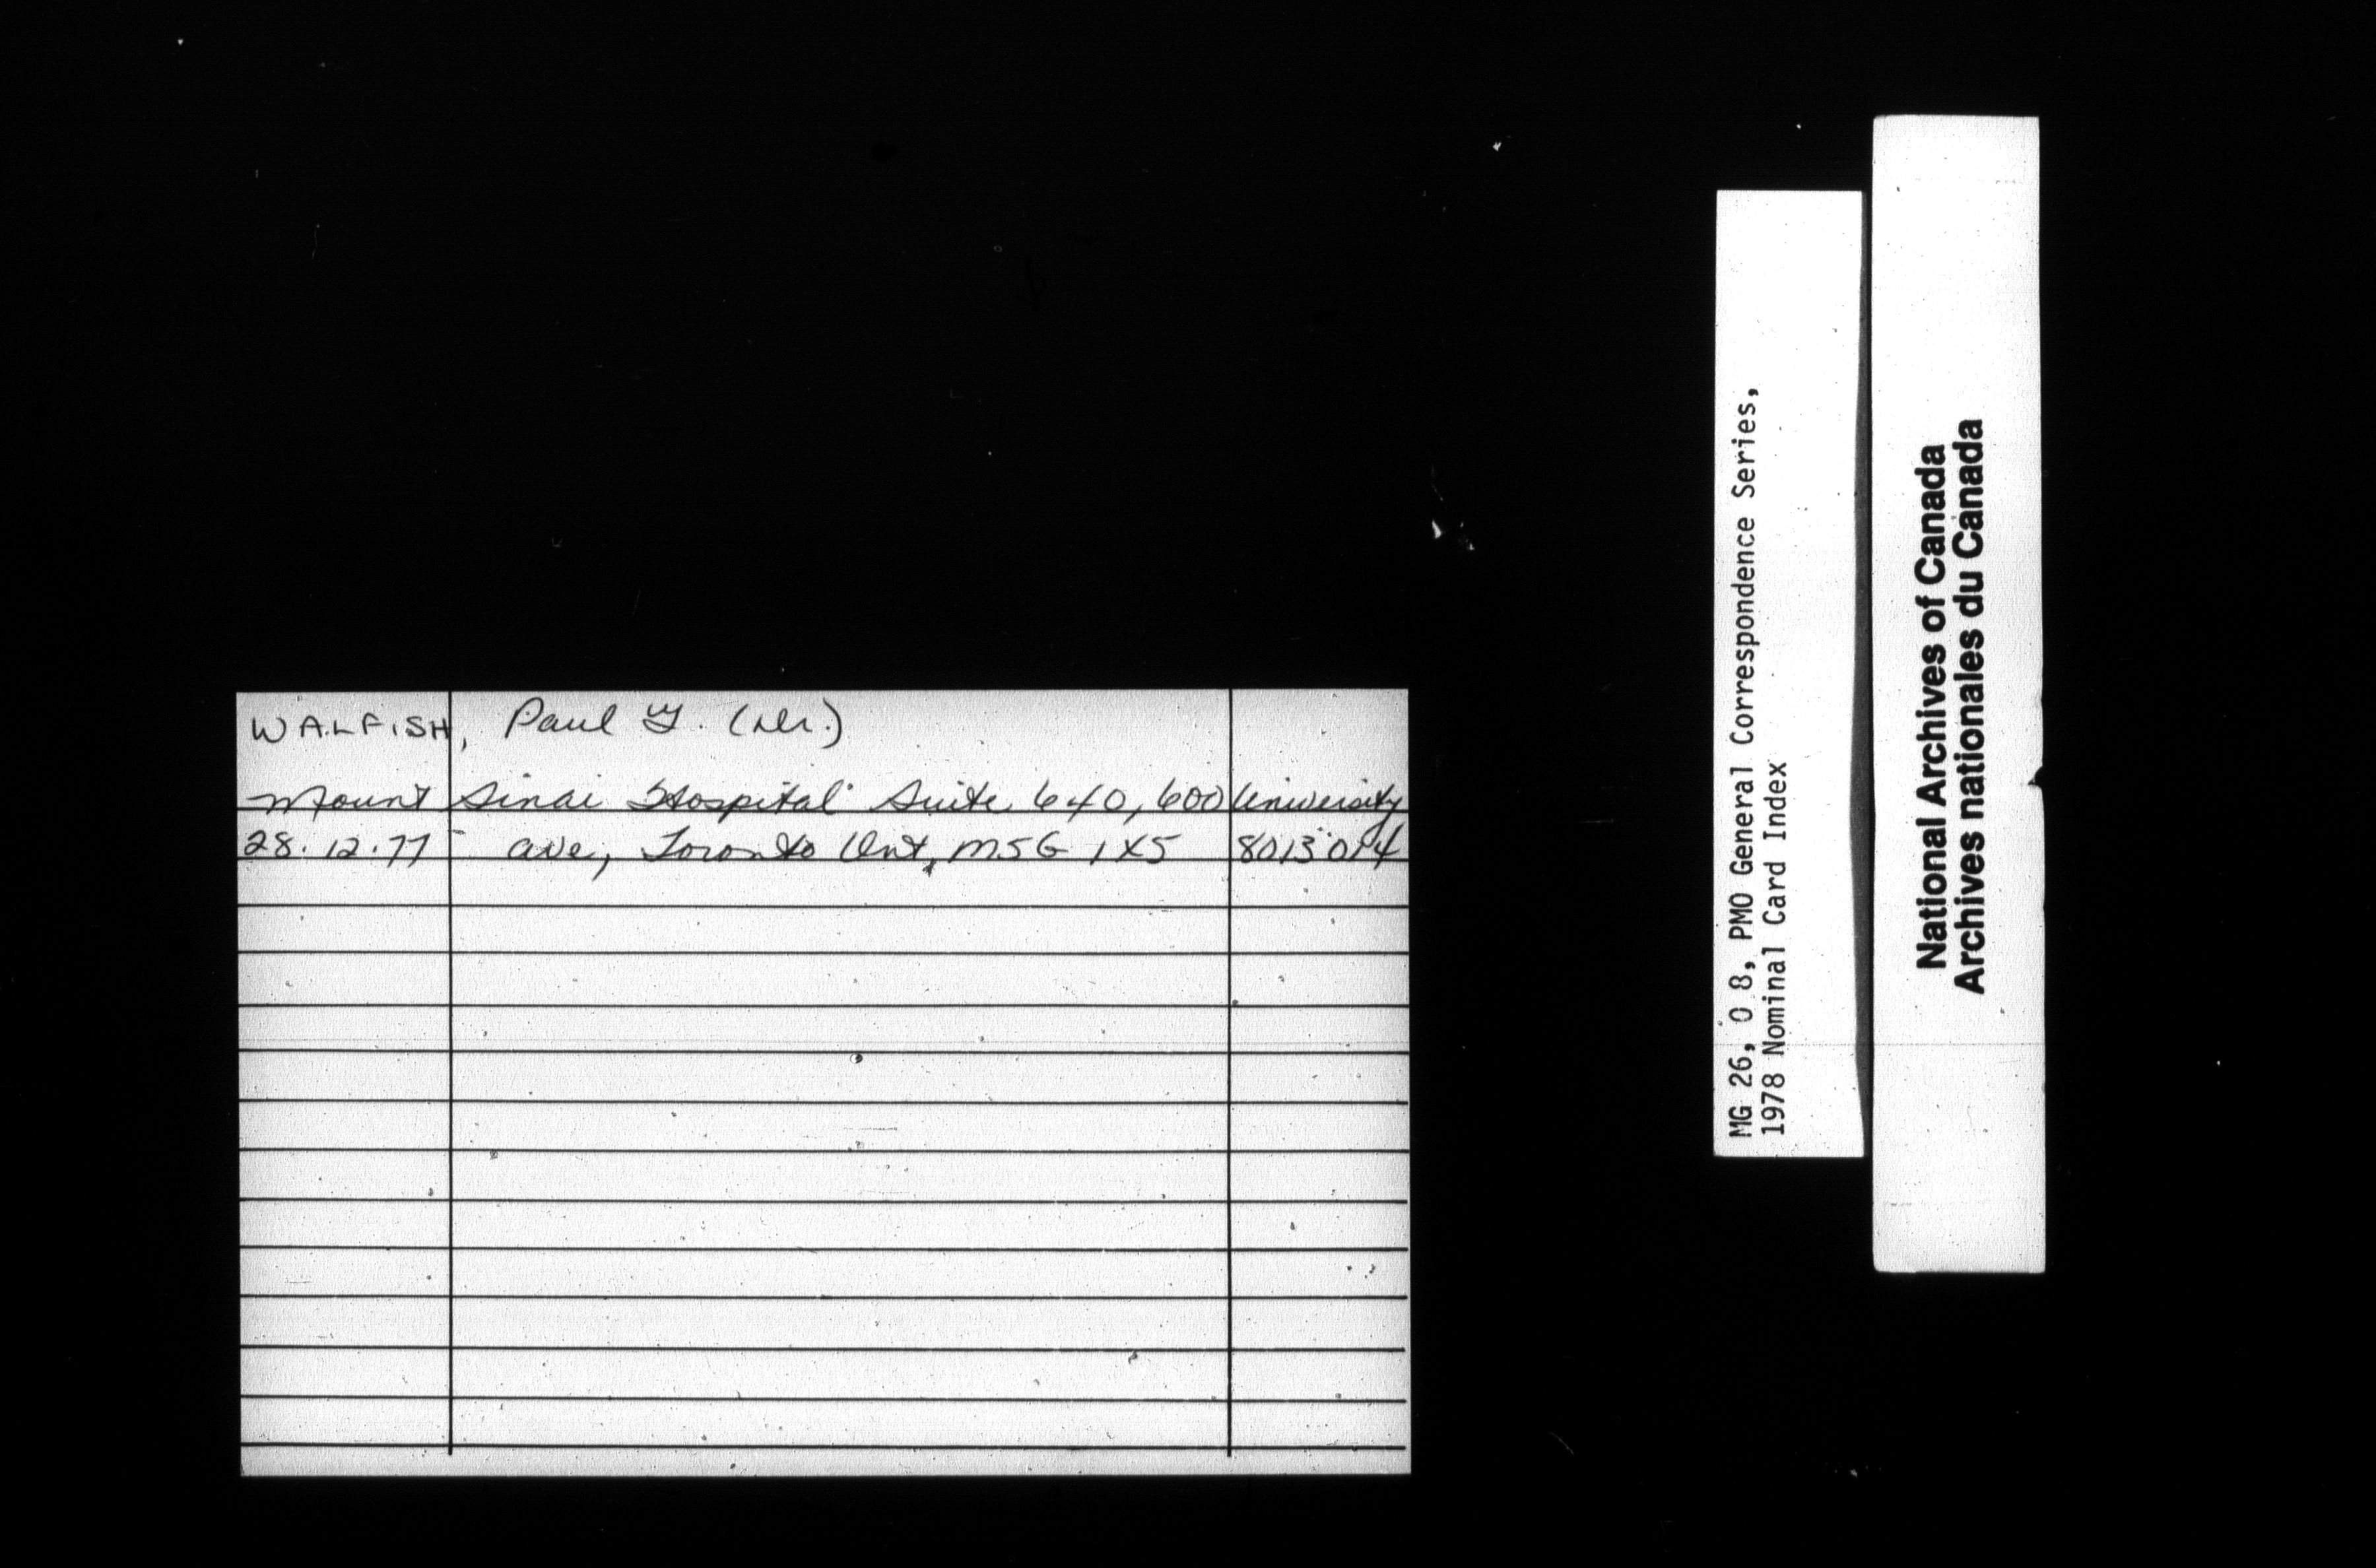 WALFISH, Paul G. (Dr.)
Mount Sinai Hospital Suite 640, 600 University
28.12.77 - ave, Toronto Ont, M5G 1X5 8013014
MG 26, O 8, PMO General Correspondence Series,
1978 Nominal Card Index
National Archives of Canada
Archives nationales du Canada